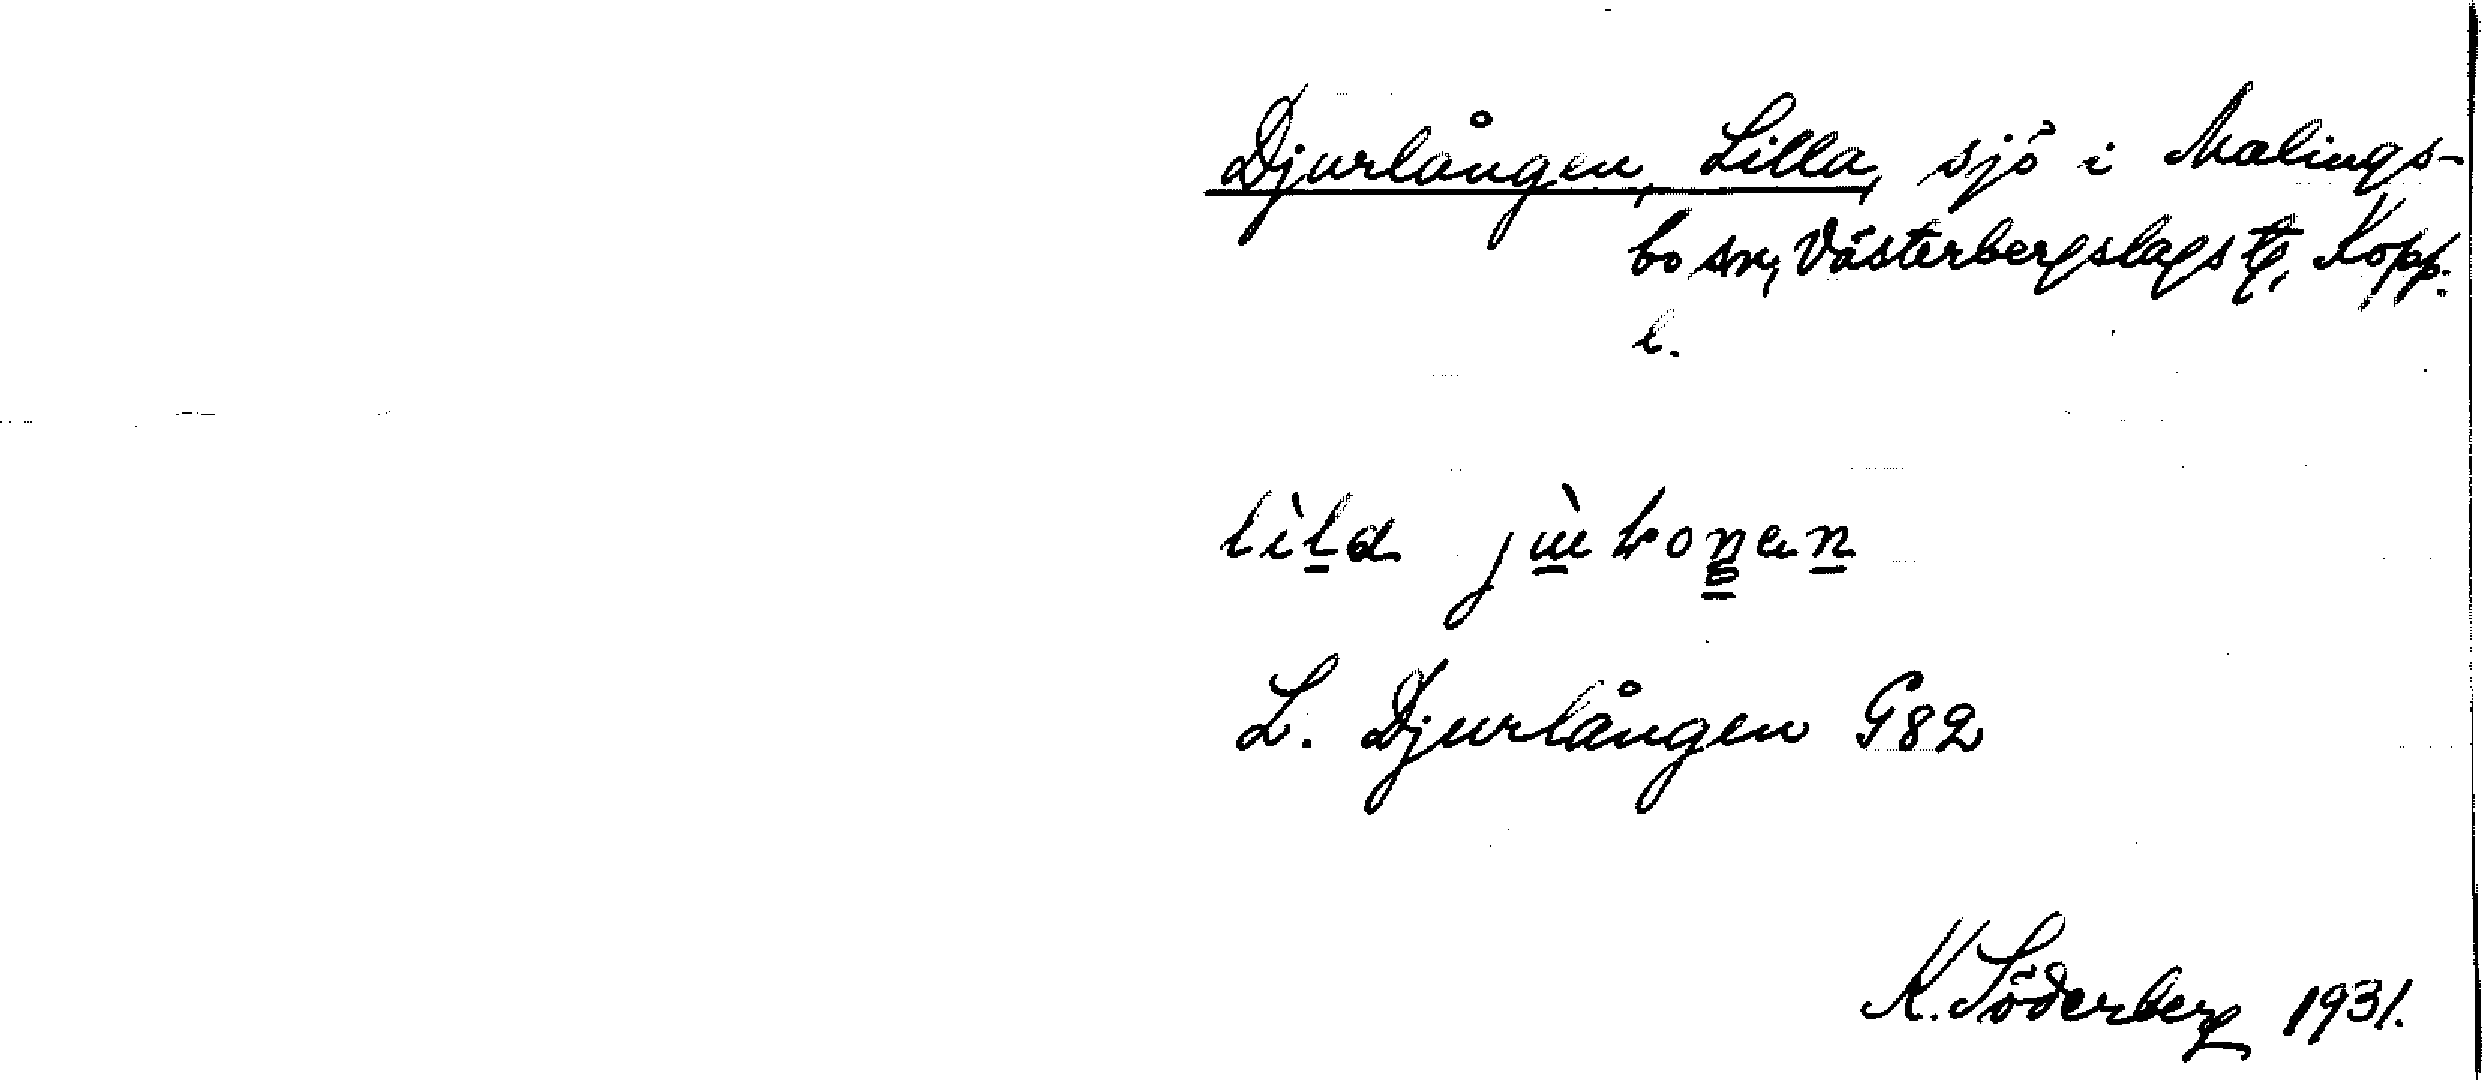 Djurlången, Lilla, sjö i Malings-
bo sn, Västerbergslags tg, Kopp.
l.
lìla
L. Djurlången G82
K. Söderberg 1931.